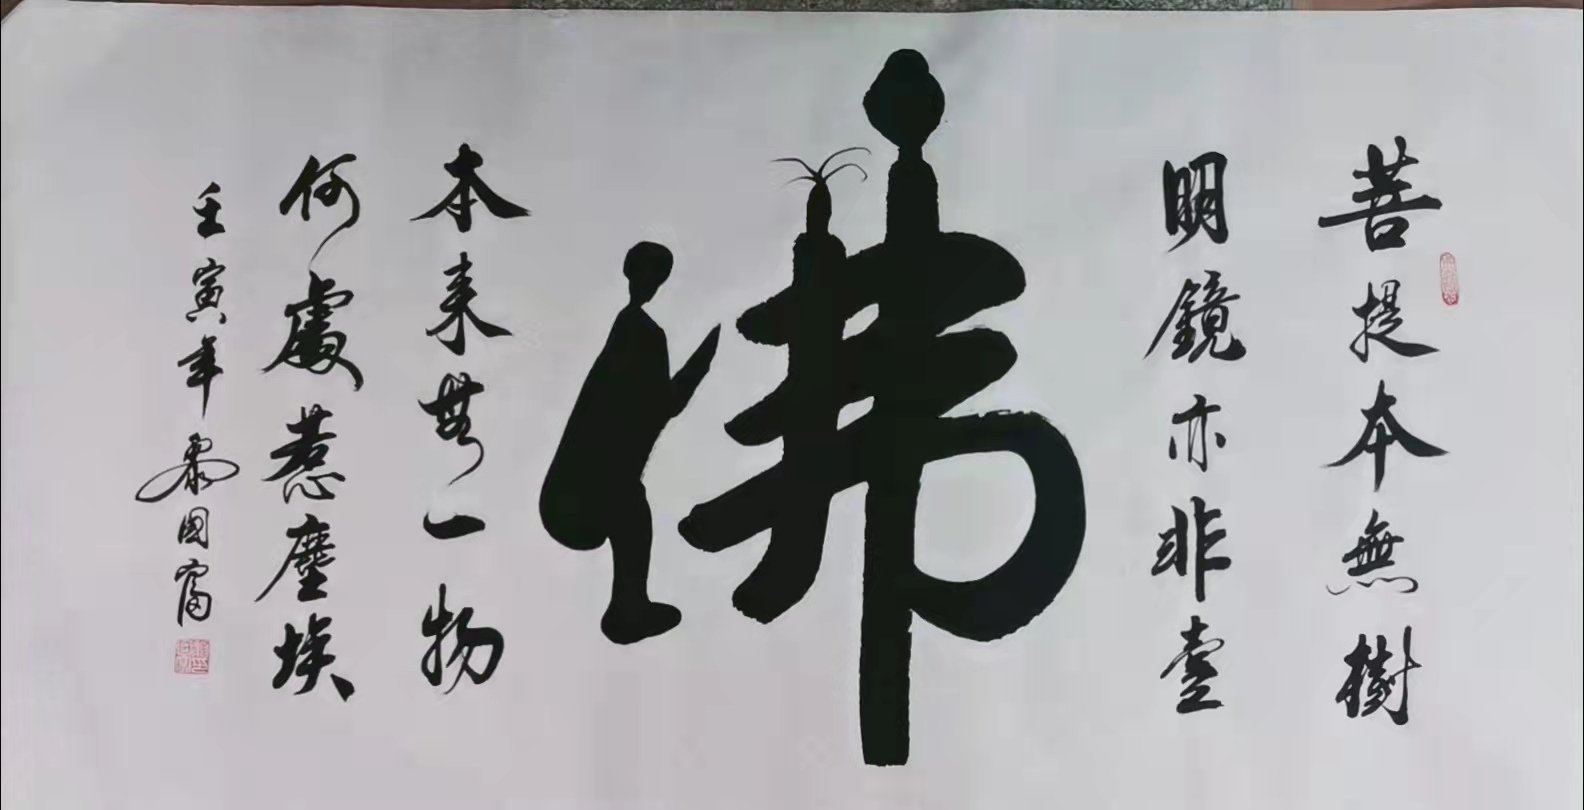 菩提本無樹
明鏡亦非臺
佛
本来無一物
何處惹塵埃
壬寅年黎國富